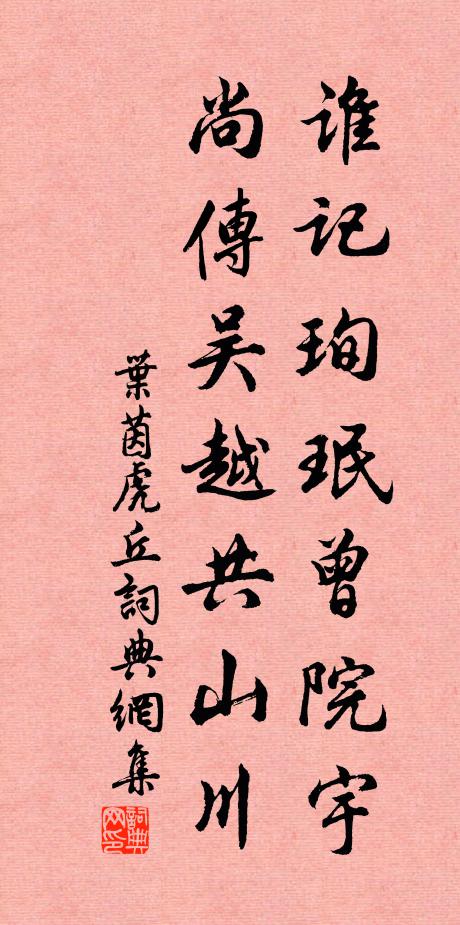 谁記珣珉曾院宇
尚傳吴越共山川
葉茵虎丘詞典網集
詞典网印